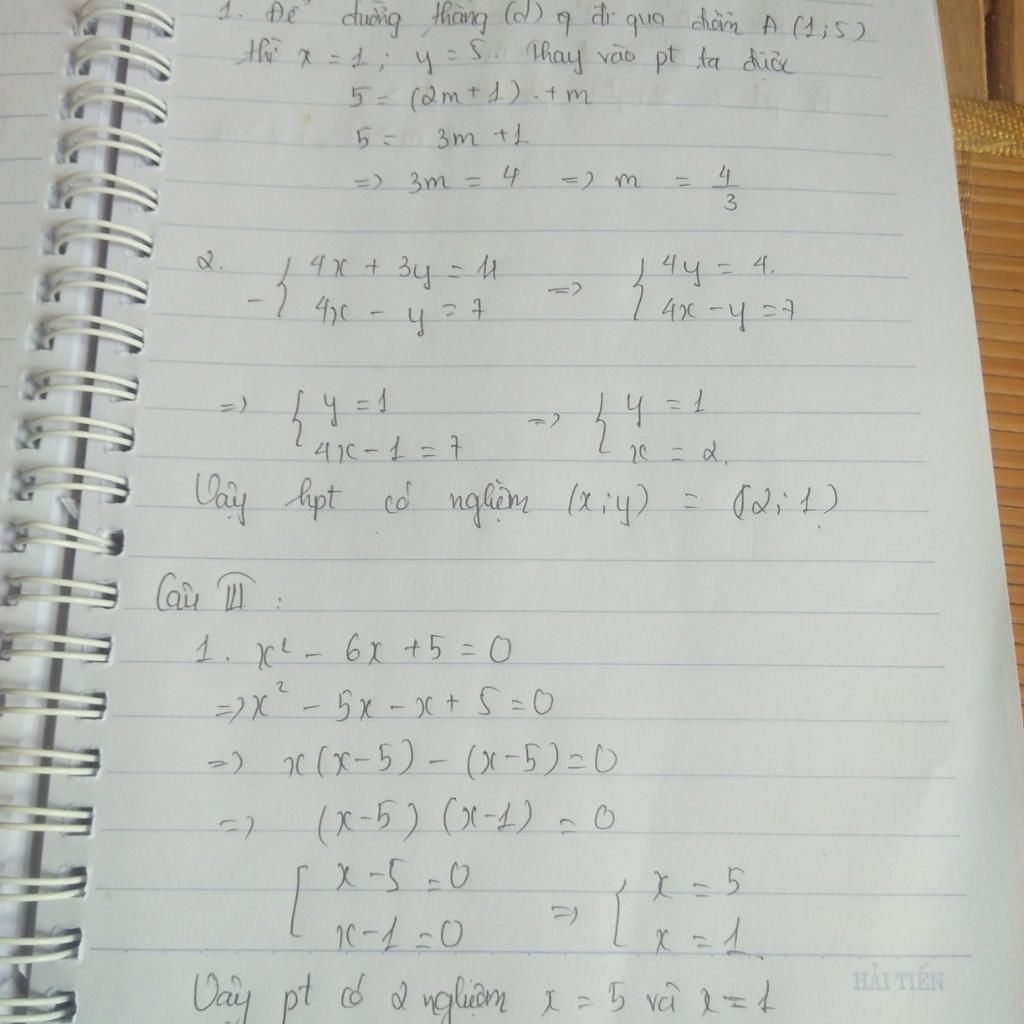 1. Để đường thẳng (d) q đi qua điểm A (1;5)
thì x = 1; y = 5. Thay vào pt ta được
5 = (2m + 1) . + m
5 = 3m + 1
=> 3m = 4 => m = 4/3
2. - { 4x + 3y = 11 => { 4y = 4.
4x - y = 7 4x - y = 7
=> { y = 1 => { y = 1
4x - 1 = 7 x = 2.
Vậy hpt có nghiệm (x;y) = (2;1)
Câu III :
1. x² - 6x + 5 = 0
=> x² - 5x - x + 5 = 0
=> x(x-5) - (x-5) = 0
=> (x-5) (x-1) = 0
[ x - 5 = 0 => { x = 5
x - 1 = 0 x = 1
HẢI TIẾN
Vậy pt có 2 nghiệm x = 5 và x = 1